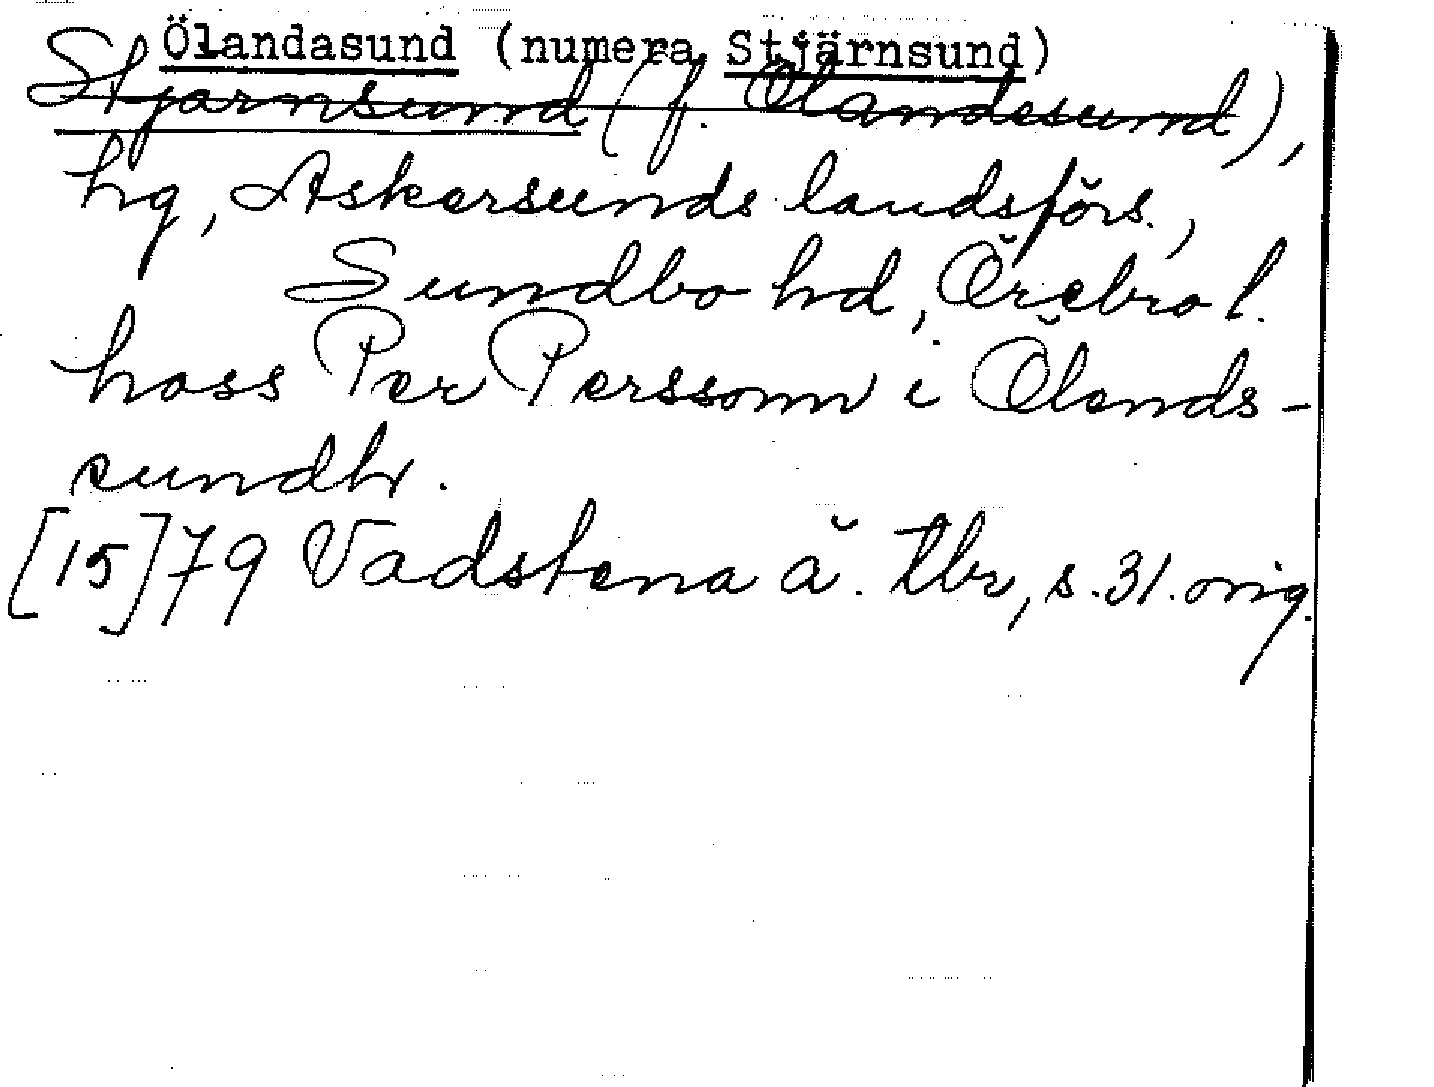 Ölandasund (numera Stjärnsund)
Stjarnsund (f. Ölandesund),
hg, Askersunds landsförs.,
Sundbo hd, Örebro l.
hoss Per Perssonn i Ölands-
sundh.
[15]79 Vadstena ä. tbr, s. 31. orig.